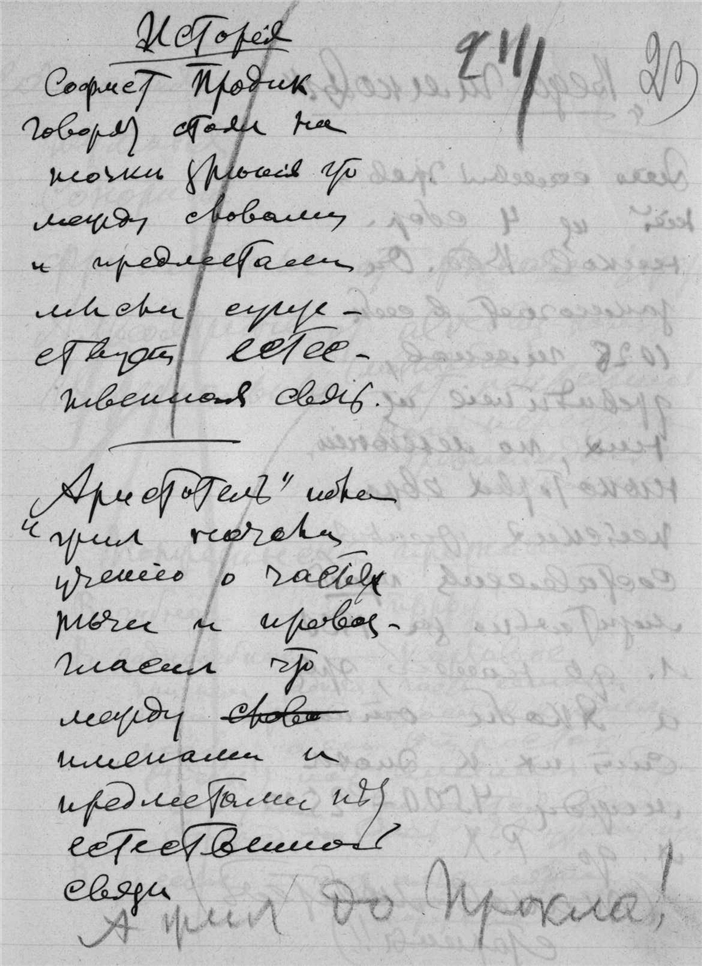 Исторія
23
Софист Продик
говорят стоял на
точки зрѣнія что
между словами
и предметами
мысли суще-
ствует естес-
твенная связь.
Аристотель"
учению о частях
рѣчи и провоз-
гласил что
между слова
именами и
предметами нѣт
естественной
связи
А жил до Прокла!